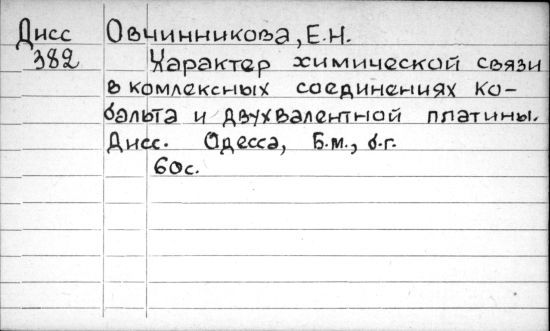 Дисс Овчинникова, Е.Н.
382 Характер химической связи
в комлексных соединениях ко-
бальта и двухвалентной платины.
Дисс. Одесса, Б.м., б.г.
60с.